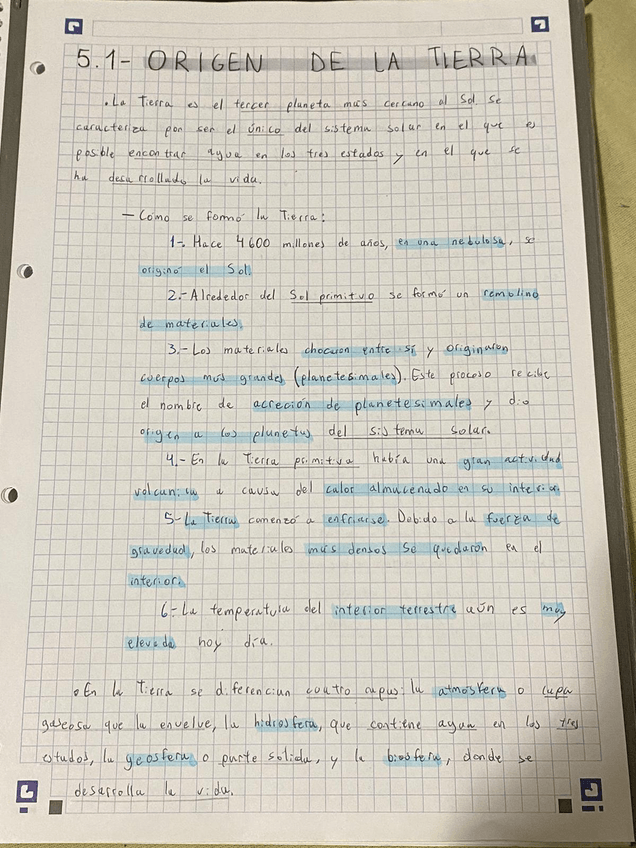 5.1- ORIGEN DE LA TIERRA
•La Tierra es el tercer planeta mas cercano al Sol se
caracteriza por ser el único del sistema solar en el que es
posible encontrar agua en los tres estados y en el que se
ha desarrollado la vida.
— Cómo se formó la Tierra:
1-. Hace 4600 millones de años, en una nebulosa, se
originó el Sol.
2.- Alrededor del Sol primitivo se formó un remolino
de materiales.
3.- Los materiales chocaron entre sí y originaron
cuerpos mas grandes (planetesimales). Este proceso recibe
el nombre de acreción de planetesimales y dio
origen a los planetas del sistema solar.
4.- En la Tierra primitiva había una gran actividad
volcanica a causa del calor almacenado en su interior.
5-La Tierra comenzó a enfriarse. Debido a la fuerza de
gravedad, los materiales mas densos se quedaron en el
interior.
6-La temperatura del interior terrestre aún es muy
elevada hoy día.
•En la Tierra se diferencian cuatro capas: la atmósfera o capa
gaseosa que la envuelve, la hidrosfera, que contiene agua en los tres
estados, la geosfera o parte solida, y la biosfera, donde se
desarrolla la vida.